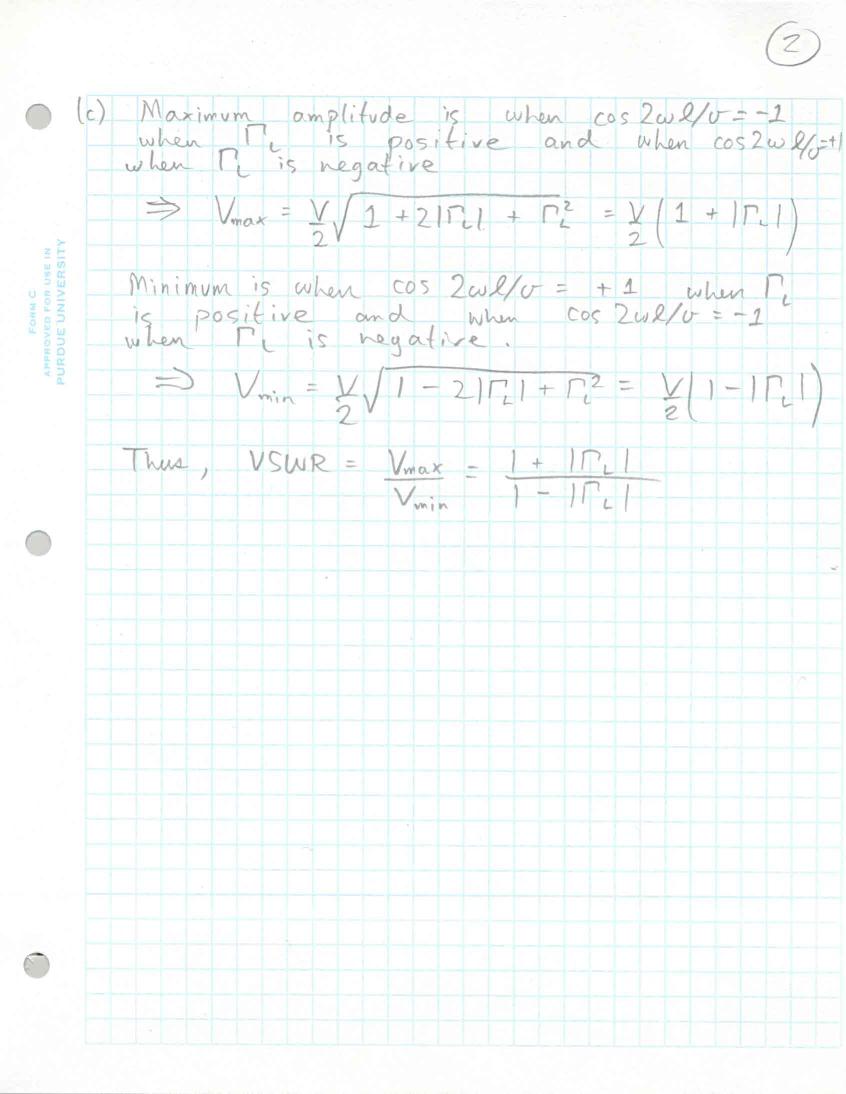 2
(c) Maximum amplitude is when cos 2ωl/v = -1
when Γ_L is positive and when cos 2ωl/v = +1
when Γ_L is negative
⇒ V_max = V/2 √(1 + 2|Γ_L| + Γ_L²) = V/2 (1 + |Γ_L|)
Minimum is when cos 2ωl/v = +1 when Γ_L
is positive and when cos 2ωl/v = -1
when Γ_L is negative.
⇒ V_min = V/2 √(1 - 2|Γ_L| + Γ_L²) = V/2 (1 - |Γ_L|)
Thus, VSWR = V_max/V_min = (1 + |Γ_L|)/(1 - |Γ_L|)
FORM C
APPROVED FOR USE IN
PURDUE UNIVERSITY